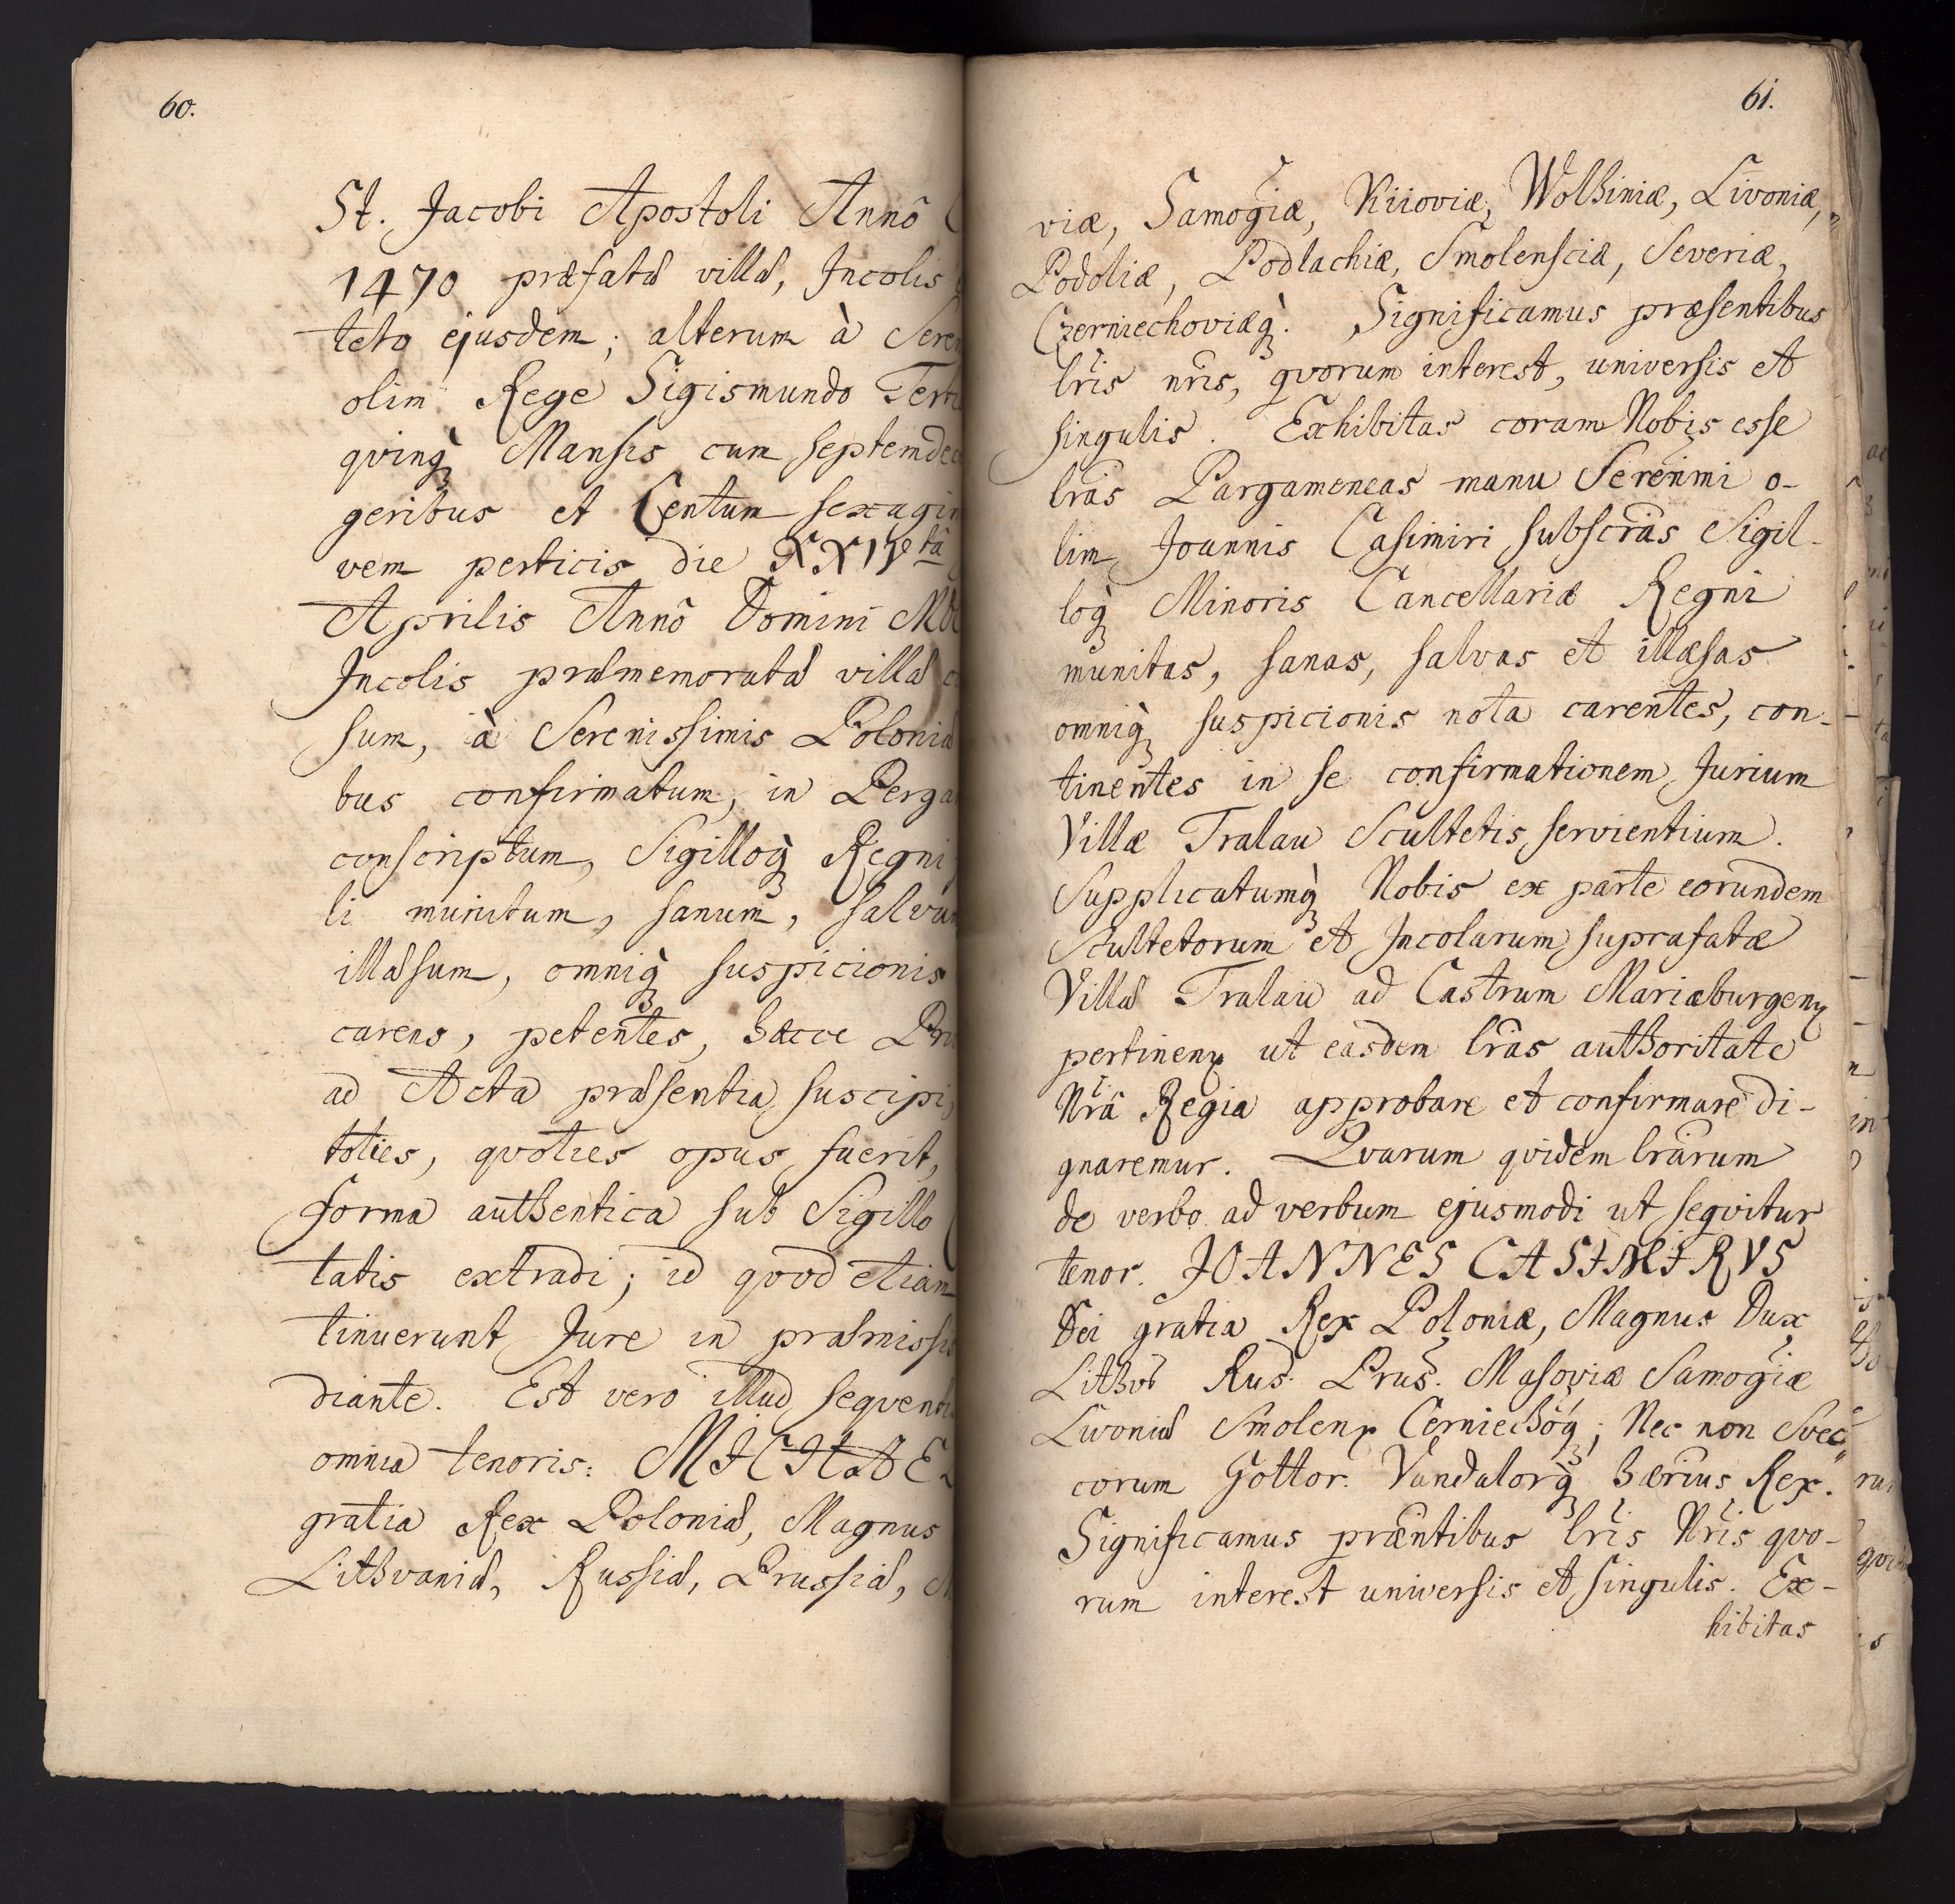 60.
St. Jacobi Apostoli Annô
1470 præfatæ villæ, Incolis
teto ejusdem; alterum à Seren
olim Rege Sigismundo Terti
qvinq̀ Mansis cum septemdec
geribus et Centum sexagin
vem perticis die XXIVtâ
Aprilis Annô Domini MD
Incolis præmemoratæ villæ
sum, à Serenissimis Poloniæ
bus confirmatum, in Perga
conscriptum, Sigilloq̀ Regni
li munitum, sanum, salvum
illæsum, omniq̀ suspicionis
carens, petentes, hocce Pri
ad Acta præsentia suscipi,
toties, qvoties opus fuerit,
forma authentica sub Sigillo
tatis extradi; id qvod etiam
tinuerunt Jure in præmissis
diante. Est vero illud seqventis
omnia tenoris: MICHAE
gratia Rex Poloniæ, Magnus
Lithvaniæ, Russiæ, Prussiæ, M
61.
viæ, Samogiæ, Kiioviæ, Wolhiniæ, Livoniæ,
Podoliæ, Podlachiæ, Smolensciæ, Severiæ,
Czerniechoviæq̀. Significamus præsentibus
lris nris, qvorum interest, universis et
singulis. Exhibitas coram Nobis esse
lras Pargameneas manu Serenmi o-
lim Joannis Casimiri subscras Sigil-
loq̀ Minoris Cancellariæ Regni
munitas, sanas, salvas et illæsas
omniq̀ suspicionis nota carentes, con-
tinentes in se confirmationem Jurium
Villæ Tralau Scultetis servientium.
Supplicatumq̀ Nobis ex parte eorundem
Scultetorum et Incolarum suprafatæ
Villæ Tralau ad Castrum Mariæburgenx
pertinenx ut easdem lras authoritate
Nrâ Regia approbare et confirmare di-
gnaremur. Qvarum qvidem lrarum
de verbo ad verbum ejusmodi ut seqvitur
tenor. JOANNES CASIMIRVS
Dei gratia Rex Poloniæ, Magnus Dux
Lithvæ Rus. Prus. Masoviæ Samogiæ
Livoniæ Smolenx Cerniechoq̀; Nec non Svec
corum Gottor. Vandalorq̀ hærius Rex.
Significamus præntibus lris Nris qvo-
rum interest universis et singulis. Ex-
hibitas